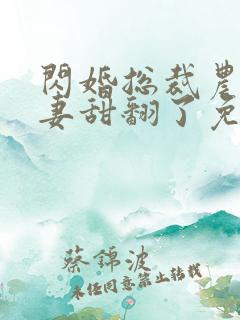 閃婚总裁農
妻甜翻了免
蔡錦波
未经同意禁止转载